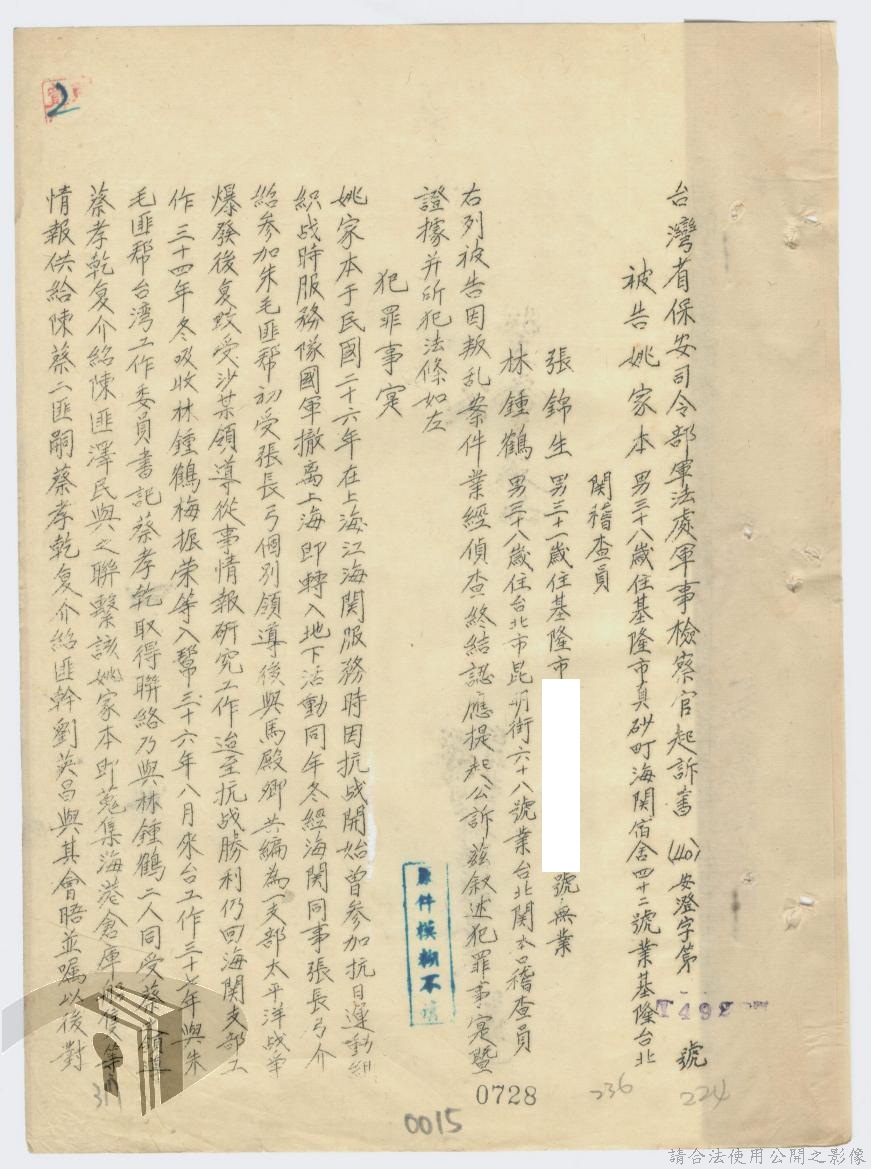 台灣省保安司令部軍法處軍事檢察官起訴書 (40)安澄字第1492號
被告姚家本 男三十八歲住基隆市真砂町海関宿舍四十二號業基隆台北
関稽查員
張錦生 男三十一歲住基隆市 號無業
林鍾鶴 男三十八歲住台北市昆明街六十八號業台北関 稽查員
右列被告因叛乱案件業經偵查終結認應提起公訴茲叙述犯罪事实暨
證據并所犯法條如左
犯罪事实
姚家本于民國二十六年在上海江海関服務時因抗战開始曾參加抗日運動組
织战時服務隊國軍撤离上海即轉入地下活動同年冬經海関同事張長弓介
紹參加朱毛匪帮初受張長弓個别領導後與馬殿卿共編為一支部太平洋战争
爆發後复 受沙葉領導從事情報研究工作迨至抗战勝利仍回海関支部工
作三十四年冬吸收林鍾鶴梅振荣等入幫三十六年八月來台工作三十七年與朱
毛匪帮台湾工作委員書記蔡孝乾取得聯絡乃與林鍾鶴二人同受蔡 領導
蔡孝乾复介紹陳匪澤民與之聯繫該姚家本即蒐集海港倉庫船隻等
情報供給陳蔡二匪嗣蔡孝乾复介紹匪幹劉英昌與其會晤並嘱以後對
2
原件模糊不清
0728
236
224
0015
請合法使用公開之影像